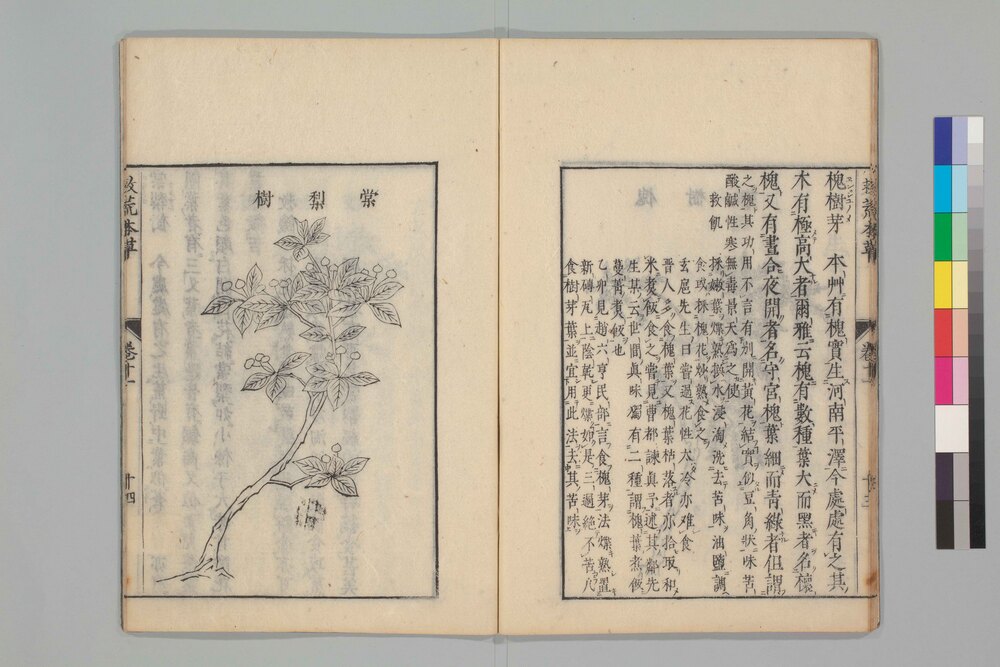 救荒本草
卷十一
十三
槐樹芽 本艸有槐實生河南平澤今處處有之其
木有極高大者爾雅云槐有數種葉大而黑者名櫰
槐又有晝合夜開者名守宮槐葉細而青綠者但謂
之槐其功用不言有別開黃花結實似豆角狀味苦
酸鹹性寒無毒景天為之使
救飢
採嫩葉煠熟換水浸淘洗去苦味油鹽調
食或採槐花炒熟食之
玄扈先生曰嘗過花性太冷亦难食
晋人多食槐葉又槐葉枯落者亦拾取和
米煮飯食之嘗見曹都諫真予述其鄰先
生某云世間真味獨有二種謂槐葉煮飯
蔓菁煮飯也
乙卯見趙六亨民部言食槐芽法煠熟置
新磚瓦上陰乾更煠如是三過絕不苦凡
食樹芽葉並宜用此法去其苦味
棠梨樹
救荒本草
卷十一
十四